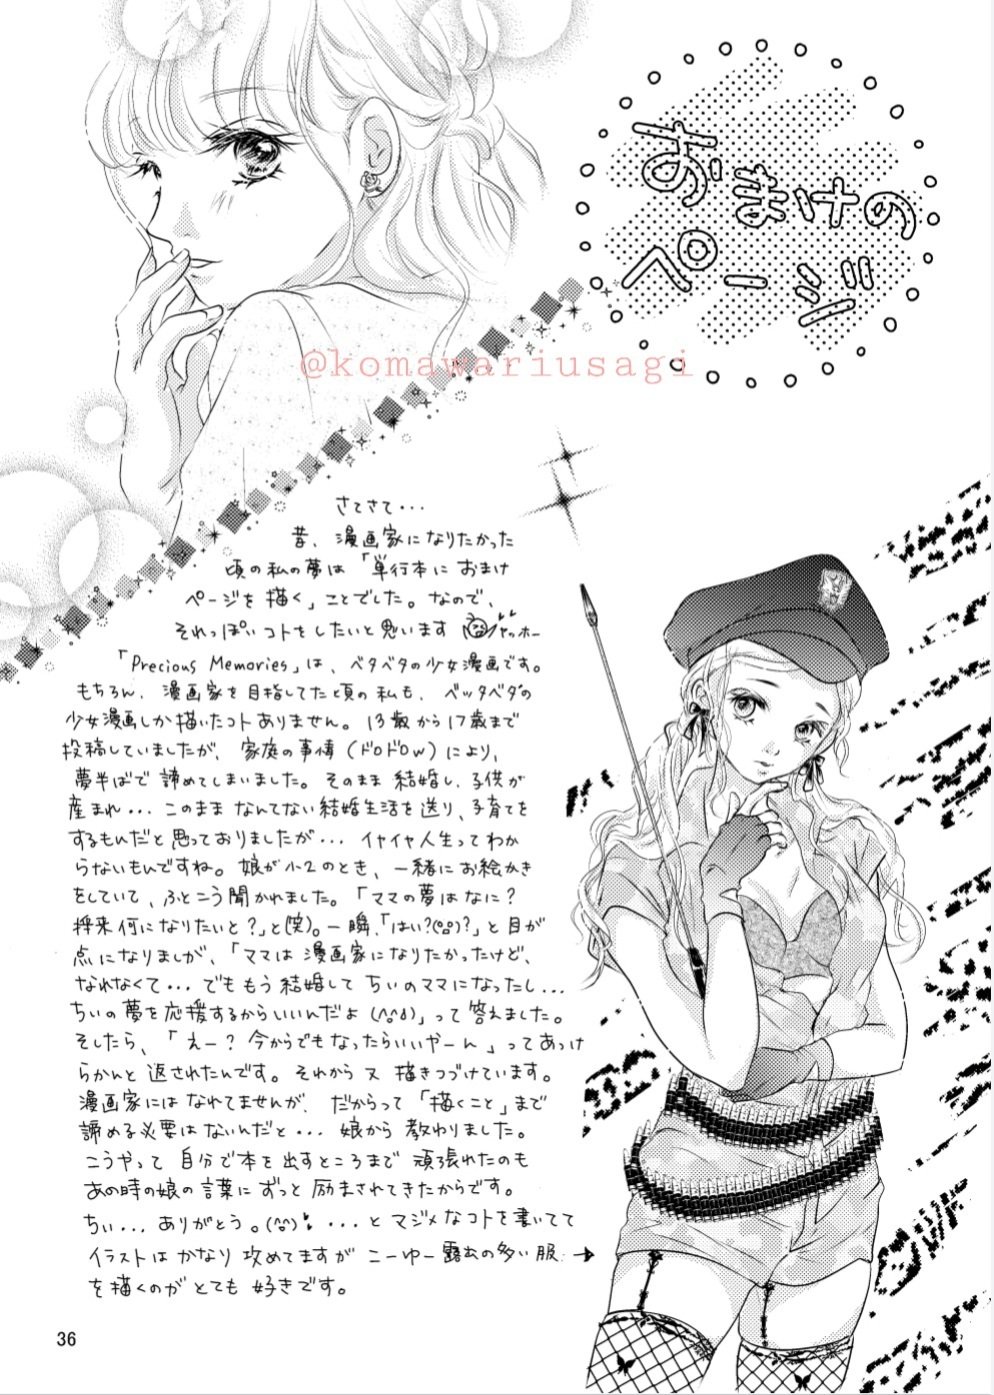 おまけの
ページ
@komawariusagi
さてさて・・・
昔、漫画家になりたかった
頃の私の夢は「単行本に おまけ
ページを 描く」ことでした。なので、
それっぽいコトをしたいと思います ヤッホー
「Precious Memories」は、ベタベタの少女漫画です。
もちろん、漫画家を目指してた頃の私も、ベッタベタの
少女漫画しか描いたコトありません。13歳から17歳まで
投稿していましたが、家庭の事情（ドロドロw）により、
夢半ばで 諦めてしまいました。そのまま 結婚し、子供が
産まれ・・・このまま なんてない結婚生活を送り、子育てを
するもんだと思っておりましたが・・・イヤイヤ人生ってわか
らないもんですね。娘が小2のとき、一緒にお絵かき
をしていて、ふとこう聞かれました。「ママの夢はなに？
将来何になりたいと？」と(笑)。一瞬、「はい？(°°)？」と目が
点になりましが、「ママは 漫画家になりたかったけど、
なれなくて・・・でももう結婚して ちぃのママになったし・・・
ちぃの夢を応援するからいいんだよ(^^)」って答えました。
そしたら、「えー？今からでもなったらいいやーん」ってあっけ
らかんと返されたんです。それから又 描きつづけています。
漫画家にはなれてませんが、だからって「描くこと」まで
諦める必要はないんだと・・・娘から教わりました。
こうやって 自分で本を出すところまで 頑張れたのも
あの時の娘の言葉に ずっと 励まされてきたからです。
ちぃ・・・ありがとう。(^^) ・・・と マジメなコトを書いてて
イラストは かなり 攻めてますが こーゆー露出の多い服→
を描くのが とても 好きです。
36